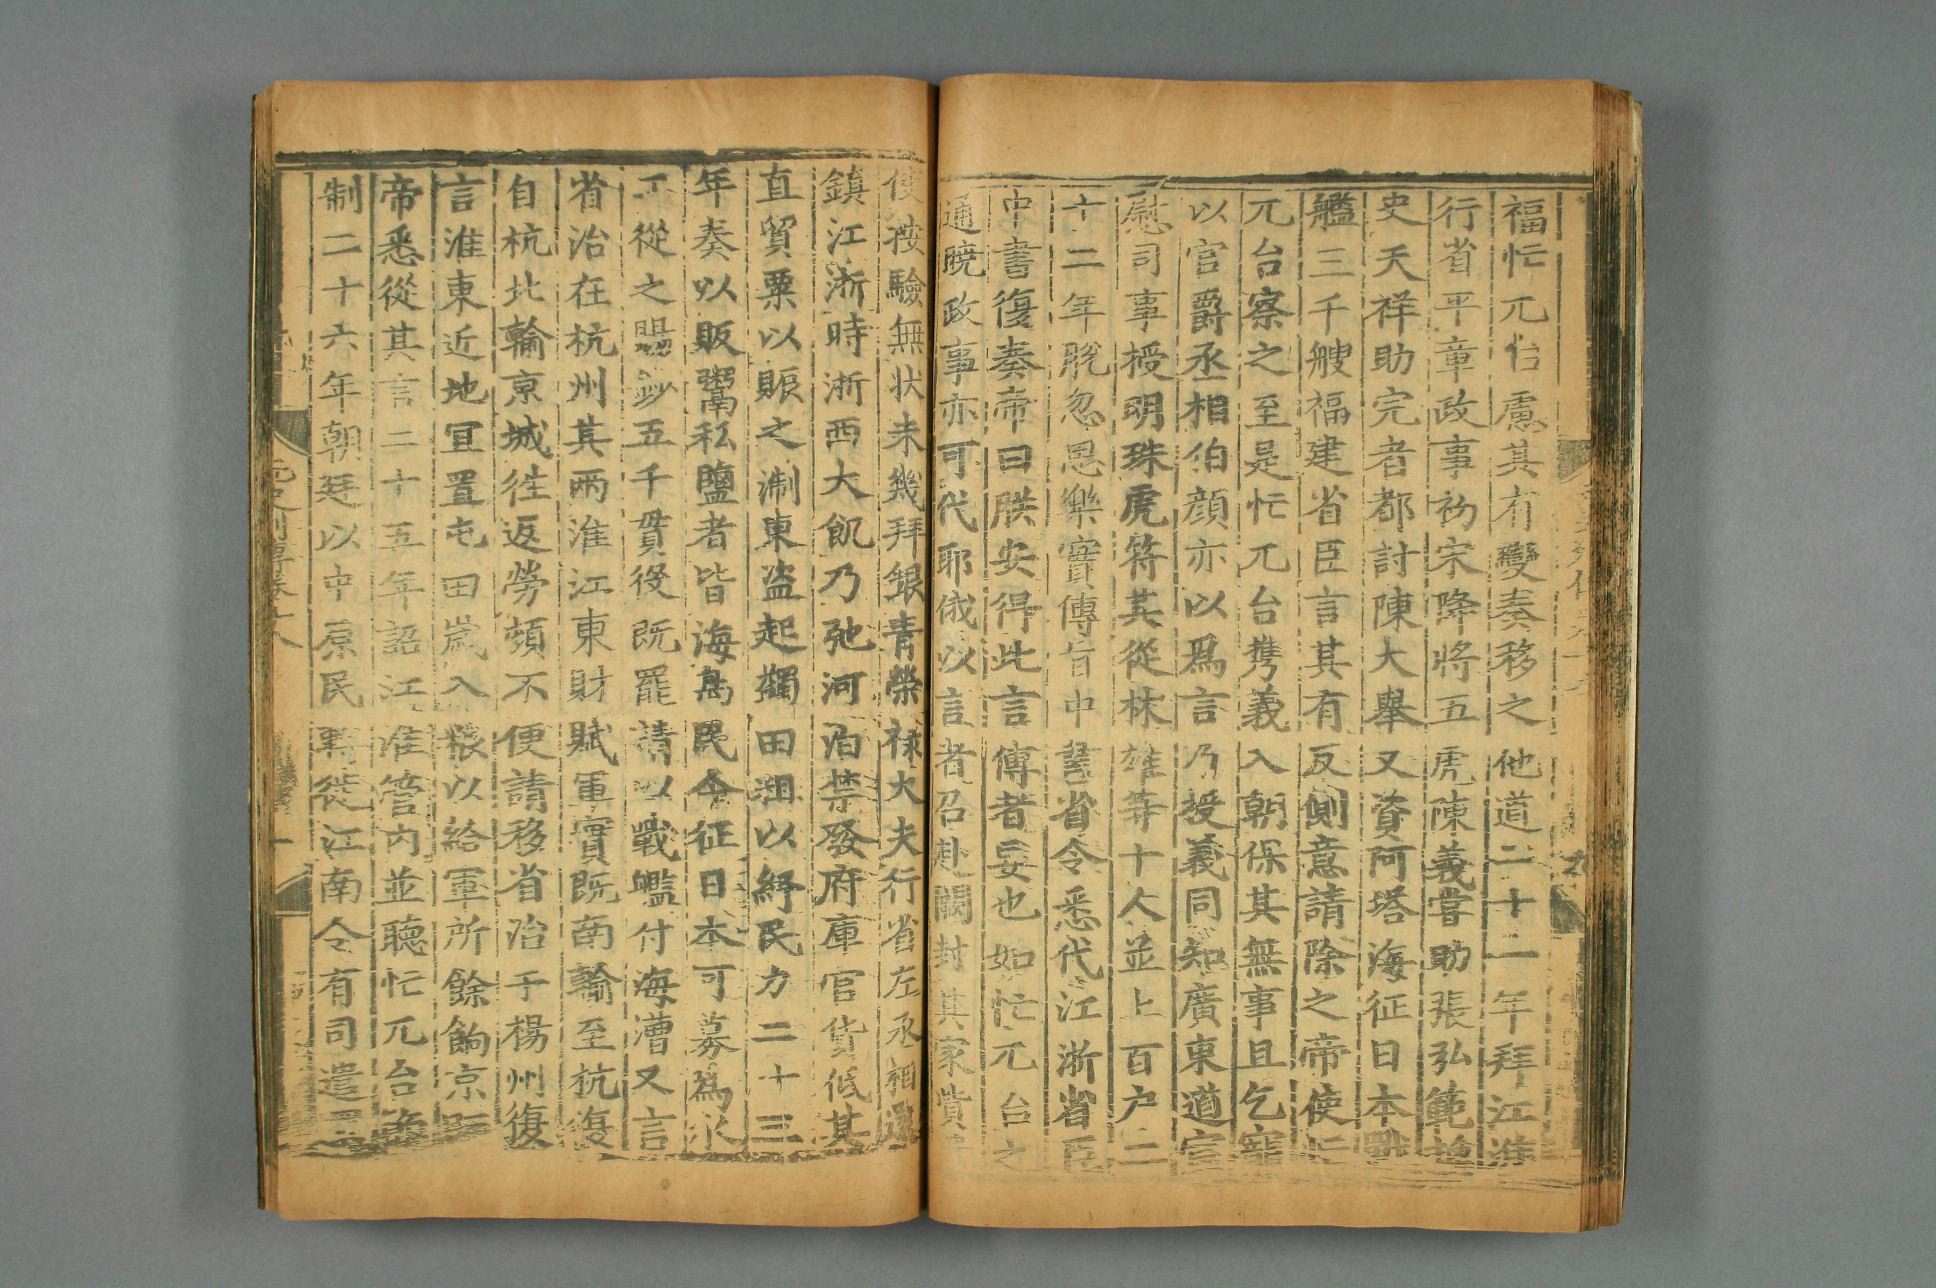 福忙兀台慮其有變奏移之他道二十一年拜江淮
行省平章政事初宋降將五虎陳義嘗助張弘範擒
史天祥助完者都討陳大舉又資阿塔海征日本戰
艦三千艘福建省臣言其有反側意請除之帝使忙
兀台察之至是忙兀台携義入朝保其無事且乞寵
以官爵丞相伯顔亦以爲言乃授義同知廣東道宣
慰司事授明珠虎符其從林雄等十人並上百户二
十二年脫忽思樂實傳旨中書省令悉代江浙省臣
中書復奏帝曰朕安得此言傳者妄也如忙兀台之
通曉政事亦可代耶俄以言者召赴闕封其家貲
使按驗無状未幾拜銀青榮禄大夫行省左丞相還
鎮江浙時浙西大飢乃弛河泊禁發府庫官貨低其
直貿粟以賑之浙東盗起蠲田租以紓民力二十三
年奏以販鬻私鹽者皆海島民今征日本可募為水
工從之賜鈔五千貫役既罷請以戰艦付海漕又言
省治在杭州其兩淮江東財賦軍實既南輸至杭復
自杭北輸京城往返勞頓不便請移省治于楊州復
言淮東近地宜置屯田歲入粮以給軍所餘餉京師
帝悉從其言二十五年詔江淮管内並聽忙兀台節
制二十六年朝廷以中原民轉徙江南令有司遣還
元史列傳卷十八